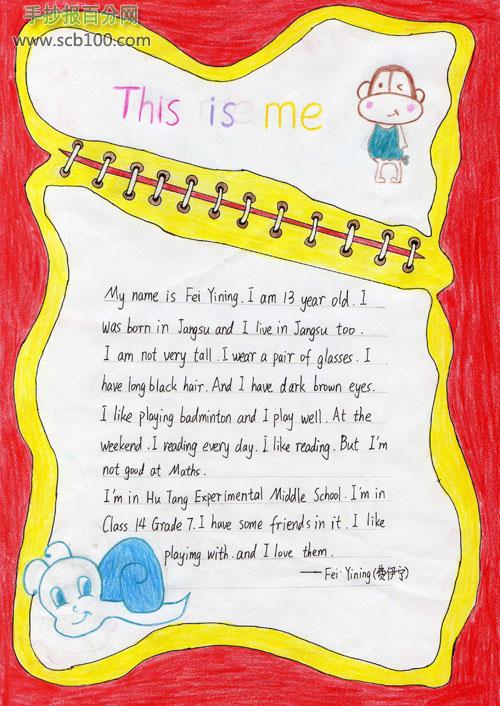 手抄报百分网
www.scb100.com
This is me
My name is Fei Yining. I am 13 year old. I
was born in Jangsu and I live in Jangsu too.
I am not very tall. I wear a pair of glasses. I
have long black hair. And I have dark brown eyes.
I like playing badminton and I play well. At the
weekend. I reading every day. I like reading. But I'm
not good at Maths.
I'm in Hu Tang Experimental Middle School. I'm in
Class 14 Grade 7. I have some friends in it. I like
playimg with. and I love them.
——Fei Yining (费伊宁)